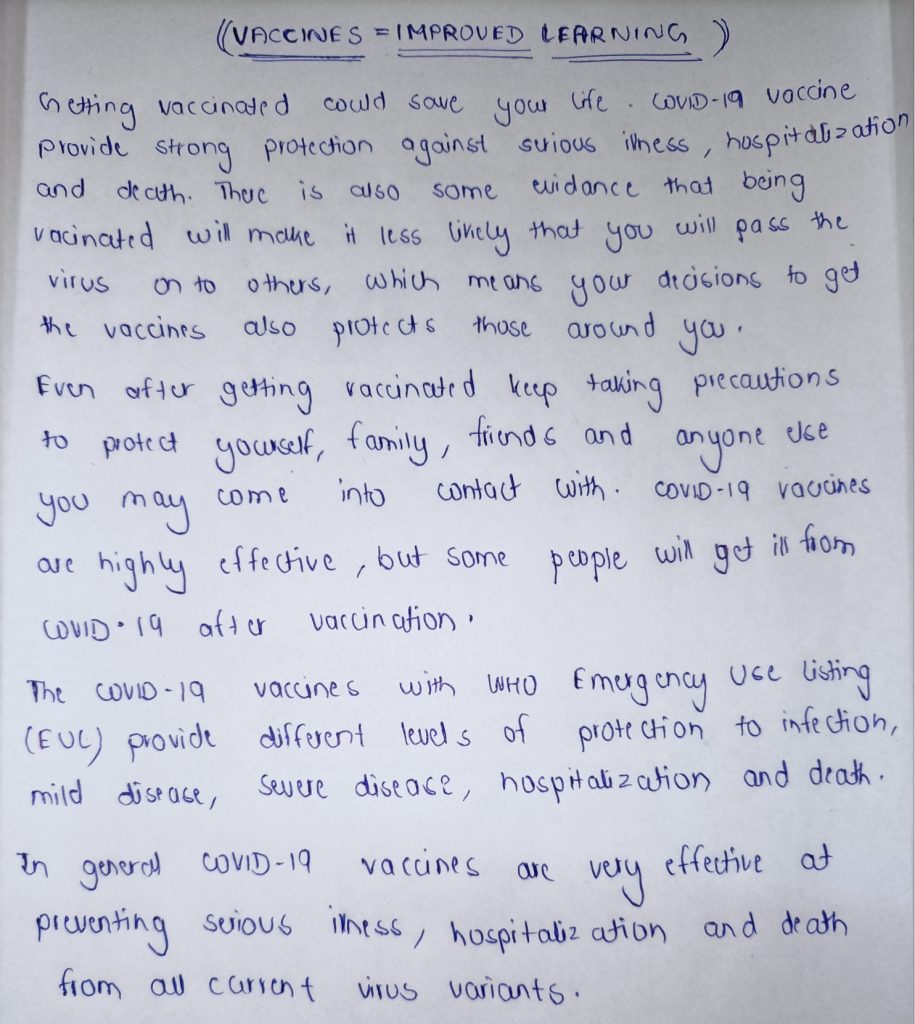 ((VACCINES = IMPROVED LEARNING))
Getting vaccinated could save your life. COVID-19 vaccine
provide strong protection against serious illness, hospitalization
and death. There is also some evidance that being
vacinated will make it less likely that you will pass the
virus on to others, which means your decisions to get
the vaccines also protects those around you.
Even after getting vaccinated keep taking precautions
to protect yourself, family, friends and anyone else
you may come into contact with. COVID-19 vaccines
are highly effective, but some people will get ill from
COVID-19 after vaccination.
The COVID-19 vaccines with WHO Emergency Use listing
(EUL) provide different levels of protection to infection,
mild disease, severe disease, hospitalization and death.
In general COVID-19 vaccines are very effective at
preventing serious illness, hospitalization and death
from all current virus variants.